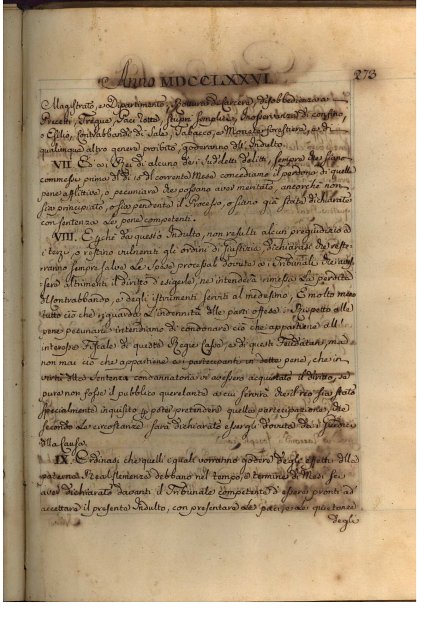 Anno MDCCLXXVI. 273
Magistrato, o Dipartimento, Rottura di Carcere, disobbedienza a
Precetti, Tregue, Paci rotte, Stupri semplici, Inosservanza di confino,
o Esilio, Contrabbandi di Sale, Tabacco, e Monete forestiere, e di
qualunque altro genere proibito, goderanno dell' Indulto.
VII. Ed ai Rei di alcuno dei suddetti delitti, sempre che siano
commessi prima del dì 10 del corrente Mese concediamo il perdono di quelle
pene afflittive, o pecuniarie che possano aver meritato, ancorchè non
sia principiato, o sia pendente il Processo, o siano già state dichiarate
con sentenza le pene competenti.
VIII. E perchè da questo Indulto, non resulti alcun pregiudizio al
terzo, o restino vulnerati gli ordini di Giustizia, dichiariamo che reste-
ranno sempre salve le spese processali dovute ai Tribunali che aves-
sero altrimenti il diritto di esigerle, nè intenderà rimessa la perdita
del Contrabbando, e degli istrumenti serviti al medesimo, E molto meno
tutto ciò che riguarda l'indennità delle parti offese: e rispetto alle
pene pecuniarie intendiamo di condonare ciò che appartiene all'
interesse Fiscale di questa Regie Casse, e di questi Giusdicenti, ma
non mai ciò che appartiene ai partecipanti in dette pene, che in
virtù della Sentenza condannatoria vi avessero acquistato il diritto, se
pure non fosse il pubblico querelante a cui servirà che il reo sia stato
specialmente inquisito per poter pretendere quella partecipazione, che
secondo le circostanze sarà dichiarato essergli dovuta dai
della Causa.
IX. Ordiniamo che quelli i quali vorranno godere degli effetti della
paterna Real clemenza debbano nel tempo, e termine di Mesi sei
aver dichiarato davanti il Tribunale competente d'essere pronti ad
accettare il presente Indulto, con presentare le paci, o le quietanze
degli